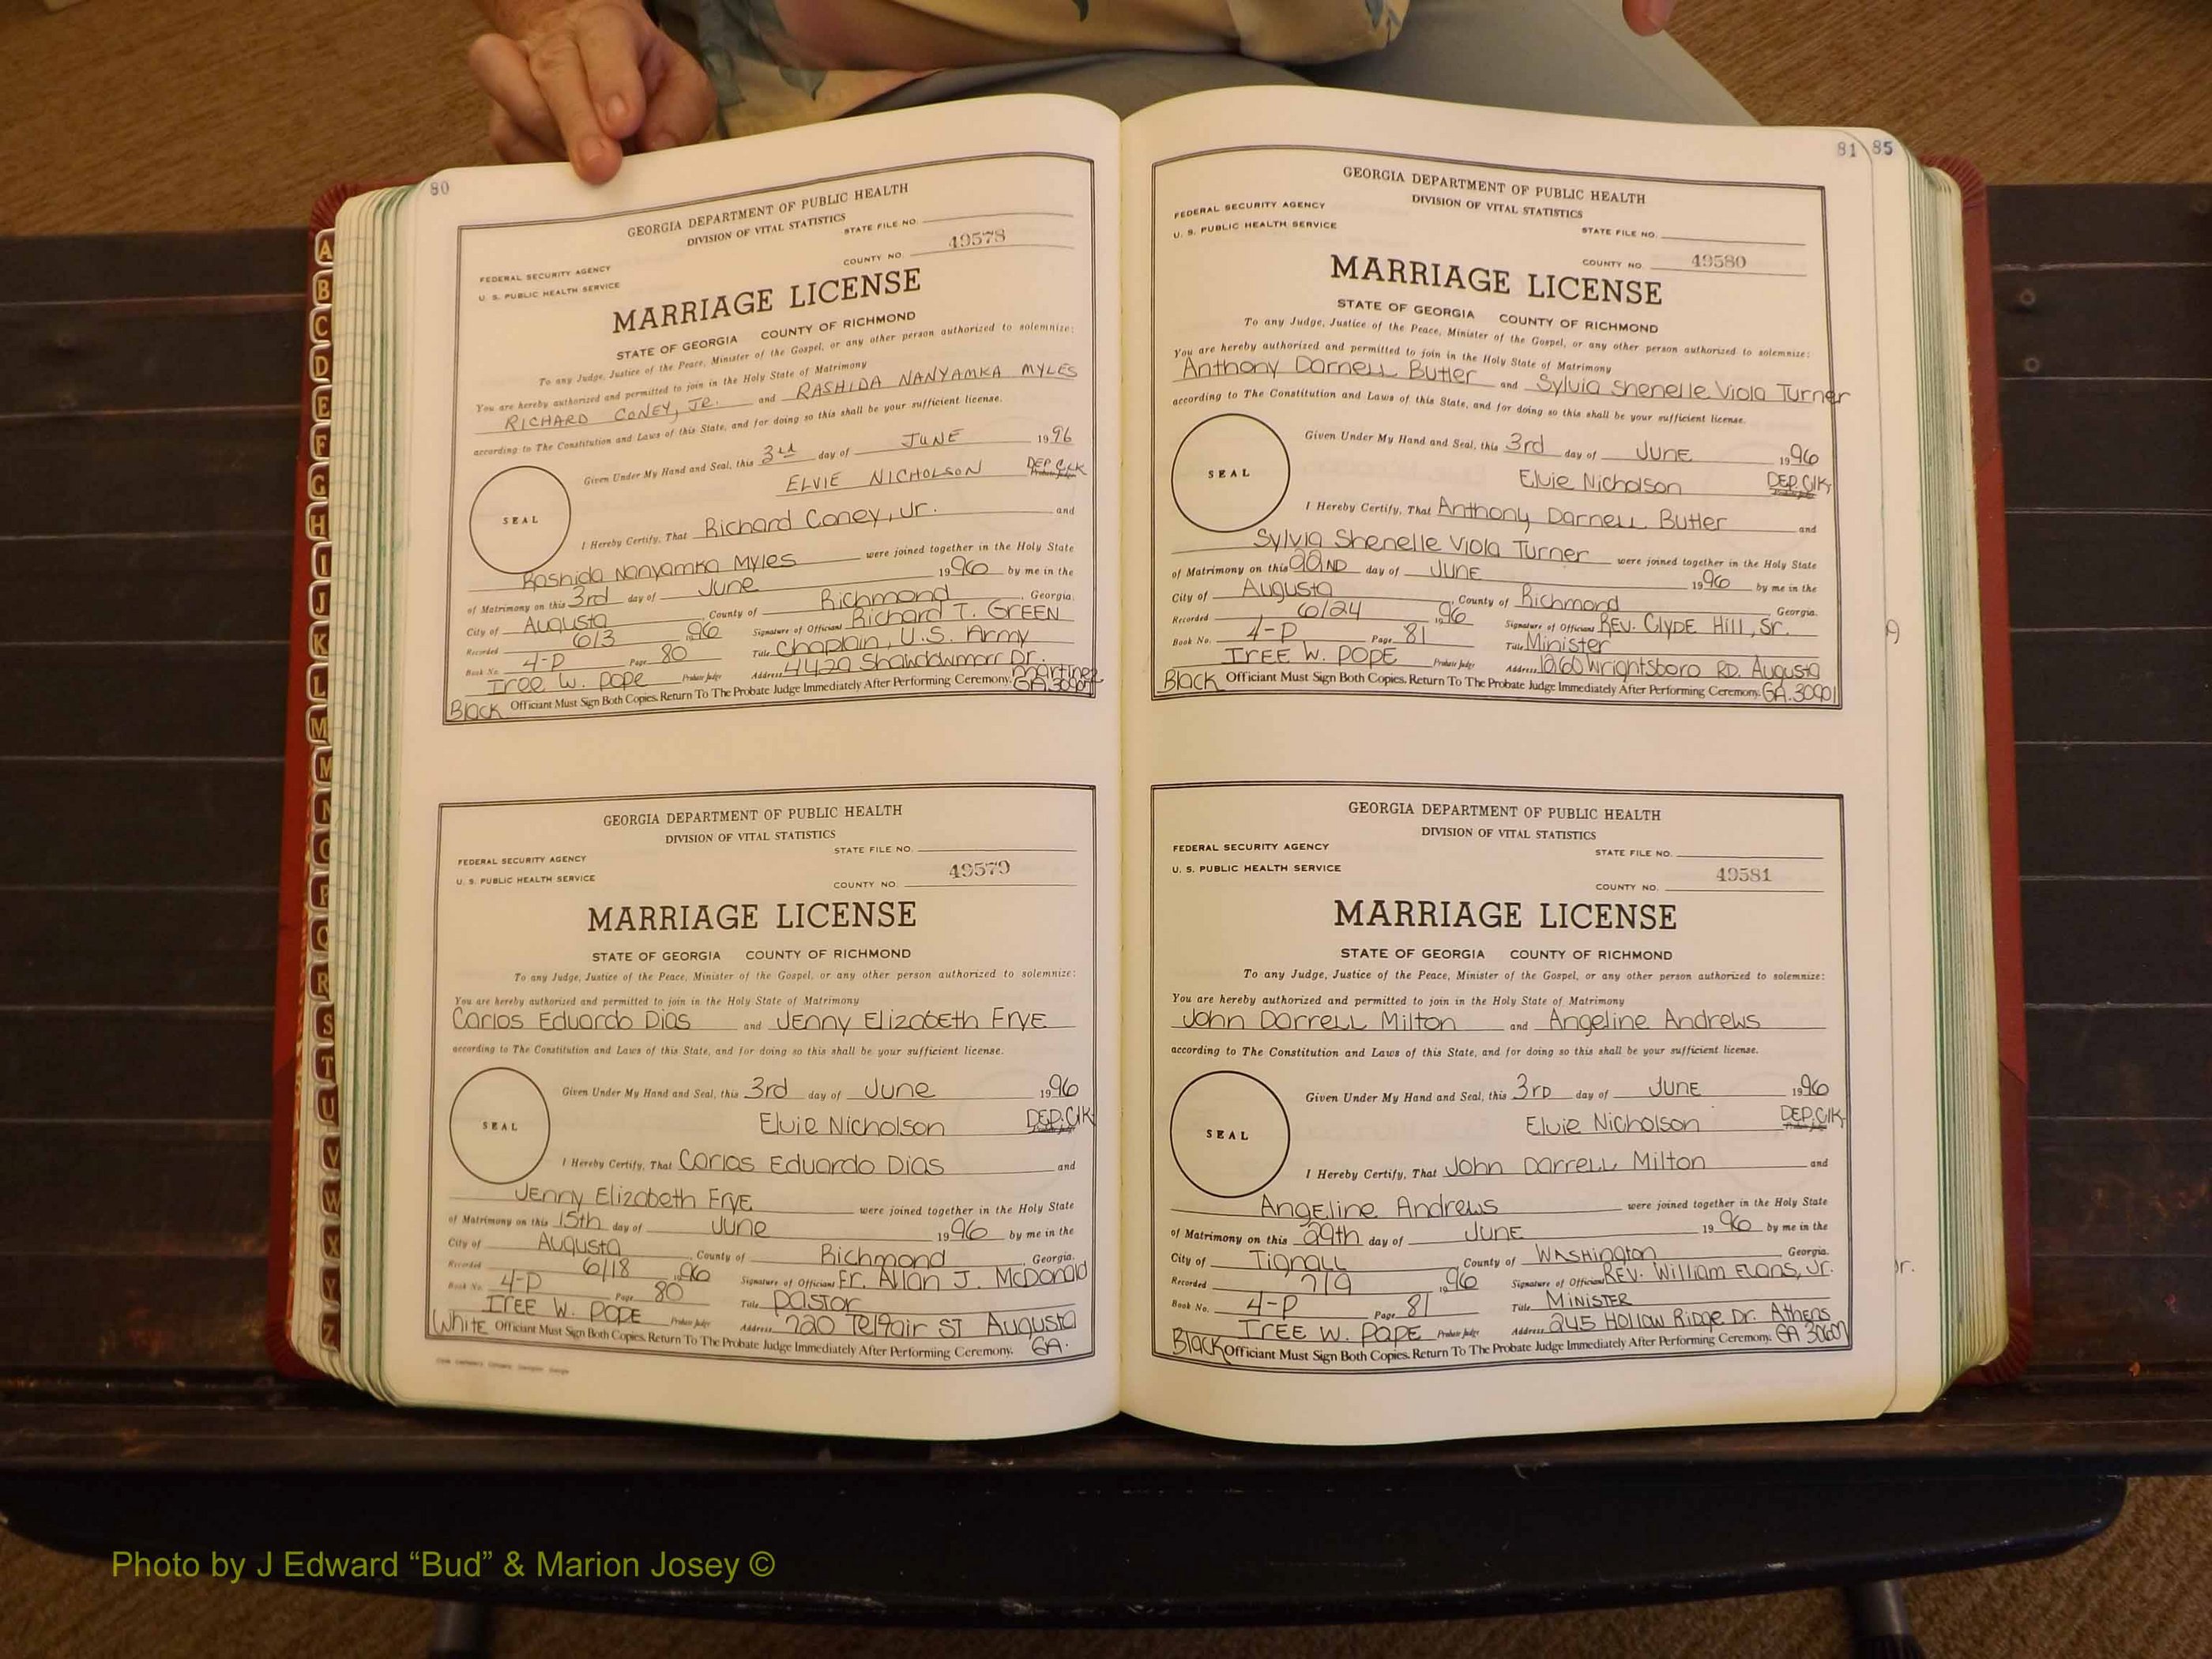 80
GEORGIA DEPARTMENT OF PUBLIC HEALTH
DIVISION OF VITAL STATISTICS
STATE FILE NO.
FEDERAL SECURITY AGENCY
U. S. PUBLIC HEALTH SERVICE
COUNTY NO. 49578
MARRIAGE LICENSE
STATE OF GEORGIA COUNTY OF RICHMOND
To any Judge, Justice of the Peace, Minister of the Gospel, or any other person authorized to solemnize:
You are hereby authorized and permitted to join in the Holy State of Matrimony
RICHARD CONEY, JR. and RASHIDA NANYAMKA MYLES
according to The Constitution and Laws of this State, and for doing so this shall be your sufficient license.
Given Under My Hand and Seal, this 3rd day of JUNE 1996
ELVIE NICHOLSON DEP. CLK
SEAL
I Hereby Certify, That Richard Coney, Jr. and
Rashida Nanyamka Myles were joined together in the Holy State
of Matrimony on this 3rd day of June 1996 by me in the
City of Augusta County of Richmond Georgia.
Recorded 6/3 1996 Signature of Official Richard T. GREEN
Book No. 4-P Page 80 Title Chaplain, U.S. Army
Tree W. Pope Probate Judge Address 4420 Shawdowmorr Dr. Martinez
Black Officiant Must Sign Both Copies. Return To The Probate Judge Immediately After Performing Ceremony. GA. 30907
GEORGIA DEPARTMENT OF PUBLIC HEALTH
DIVISION OF VITAL STATISTICS
STATE FILE NO.
FEDERAL SECURITY AGENCY
U. S. PUBLIC HEALTH SERVICE
COUNTY NO. 49579
MARRIAGE LICENSE
STATE OF GEORGIA COUNTY OF RICHMOND
To any Judge, Justice of the Peace, Minister of the Gospel, or any other person authorized to solemnize:
You are hereby authorized and permitted to join in the Holy State of Matrimony
Carlos Eduardo Dias and JENNY ElizabETH FryE
according to The Constitution and Laws of this State, and for doing so this shall be your sufficient license.
Given Under My Hand and Seal, this 3rd day of June 1996
Elvie Nicholson DEP. Clk
SEAL
I Hereby Certify, That Carlos Eduardo Dias and
JEnny Elizabeth FryE were joined together in the Holy State
of Matrimony on this 15th day of June 1996 by me in the
City of Augusta County of Richmond Georgia.
Recorded 6/18 1996 Signature of Official Fr. Allan J. McDonald
Book No. 4-P Page 80 Title Pastor
TREE W. POPE Probate Judge Address 720 Telfair ST Augusta
White Officiant Must Sign Both Copies. Return To The Probate Judge Immediately After Performing Ceremony. GA.
81 85
GEORGIA DEPARTMENT OF PUBLIC HEALTH
DIVISION OF VITAL STATISTICS
FEDERAL SECURITY AGENCY
U. S. PUBLIC HEALTH SERVICE
STATE FILE NO.
COUNTY NO. 49580
MARRIAGE LICENSE
STATE OF GEORGIA COUNTY OF RICHMOND
To any Judge, Justice of the Peace, Minister of the Gospel, or any other person authorized to solemnize:
You are hereby authorized and permitted to join in the Holy State of Matrimony
Anthony Darnell Butler and Sylvia Shenelle Viola Turner
according to The Constitution and Laws of this State, and for doing so this shall be your sufficient license.
Given Under My Hand and Seal, this 3rd day of JUNE 1996
Elvie Nicholson DEP. Clk
SEAL
I Hereby Certify, That Anthony Darnell Butler and
Sylvia Shenelle Viola Turner were joined together in the Holy State
of Matrimony on this 22ND day of JUNE 1996 by me in the
City of Augusta County of Richmond Georgia.
Recorded 6/24 1996 Signature of Official REV. Clyde Hill, Sr.
Book No. 4-P Page 81 Title Minister
TREE W. POPE Probate Judge Address 1260 Wrightsboro RD. Augusta
Black Officiant Must Sign Both Copies. Return To The Probate Judge Immediately After Performing Ceremony. GA. 30901
GEORGIA DEPARTMENT OF PUBLIC HEALTH
DIVISION OF VITAL STATISTICS
FEDERAL SECURITY AGENCY
STATE FILE NO.
U. S. PUBLIC HEALTH SERVICE
COUNTY NO. 49581
MARRIAGE LICENSE
STATE OF GEORGIA COUNTY OF RICHMOND
To any Judge, Justice of the Peace, Minister of the Gospel, or any other person authorized to solemnize:
You are hereby authorized and permitted to join in the Holy State of Matrimony
John Darrell Milton and Angeline Andrews
according to The Constitution and Laws of this State, and for doing so this shall be your sufficient license.
Given Under My Hand and Seal, this 3rD day of JUNE 1996
Elvie Nicholson DEP. Clk
SEAL
I Hereby Certify, That John Darrell Milton and
AngEline Andrews were joined together in the Holy State
of Matrimony on this 29th day of JUNE 1996 by me in the
City of Tignall County of WASHington Georgia.
Recorded 7/9 1996 Signature of Official REV. William Evans, Jr.
Book No. 4-P Page 81 Title MINISTER
TREE W. POPE Probate Judge Address 245 Hollow Ridge Dr. Athens
Black Officiant Must Sign Both Copies. Return To The Probate Judge Immediately After Performing Ceremony. GA 30607
A
B
C
D
E
F
G
H
I
J
K
L
M
M
N
O
P
Q
R
S
T
U
V
W
X
Y
Z
Photo by J Edward “Bud” & Marion Josey ©